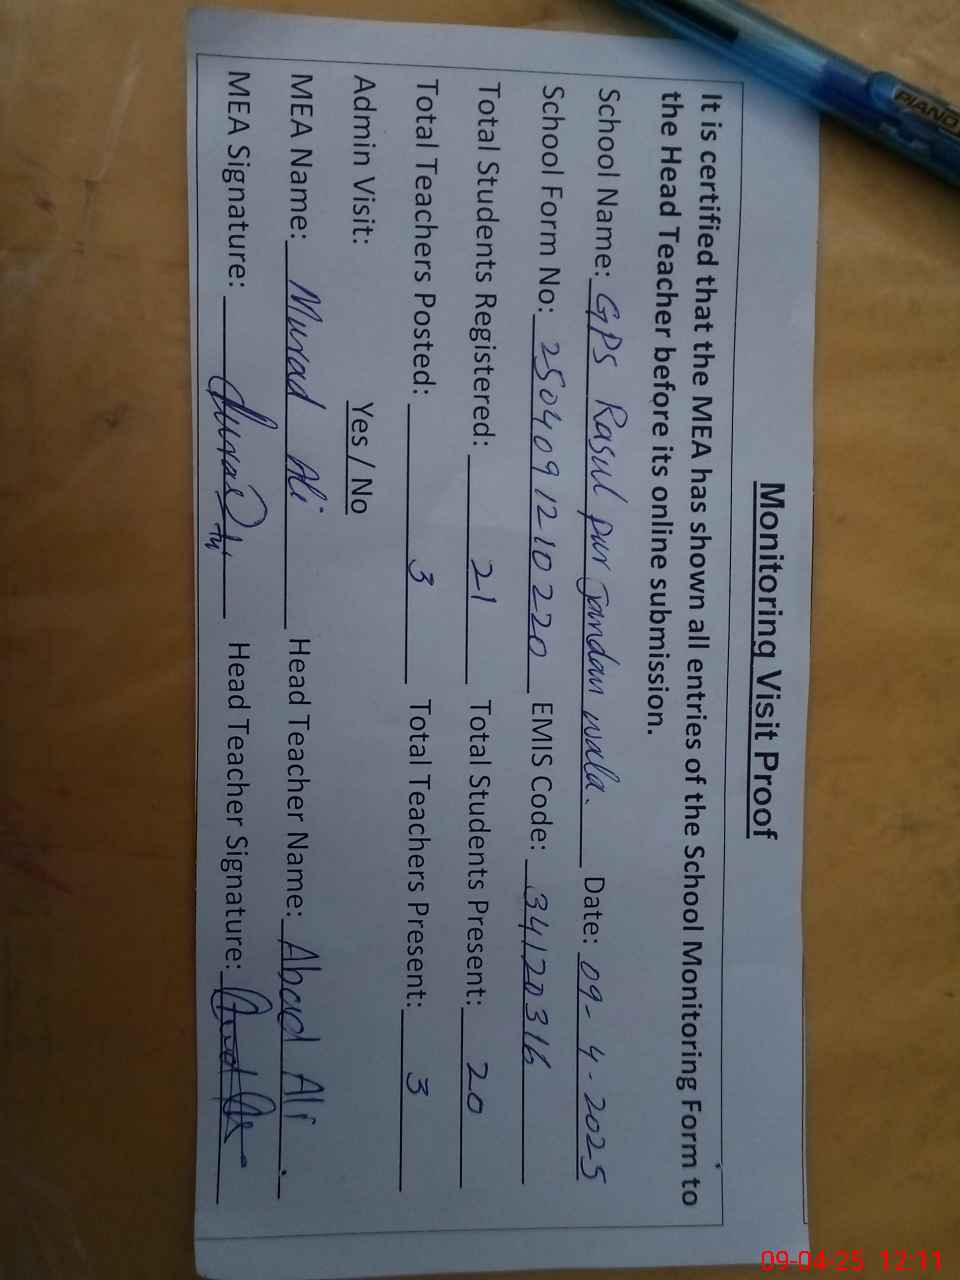 Monitoring Visit Proof
It is certified that the MEA has shown all entries of the School Monitoring Form to
the Head Teacher before its online submission.
School Name: GPS Rasul pur Jandan wala. Date: 09-4-2025
School Form No: 2504091210220 EMIS Code: 34120316
Total Students Registered: 21 Total Students Present: 20
Total Teachers Posted: 3 Total Teachers Present: 3
Admin Visit: Yes / No
MEA Name: Murad Ali Head Teacher Name: Abad Ali
MEA Signature: Murad Ali Head Teacher Signature:
PIANO
09-04-25 12:11